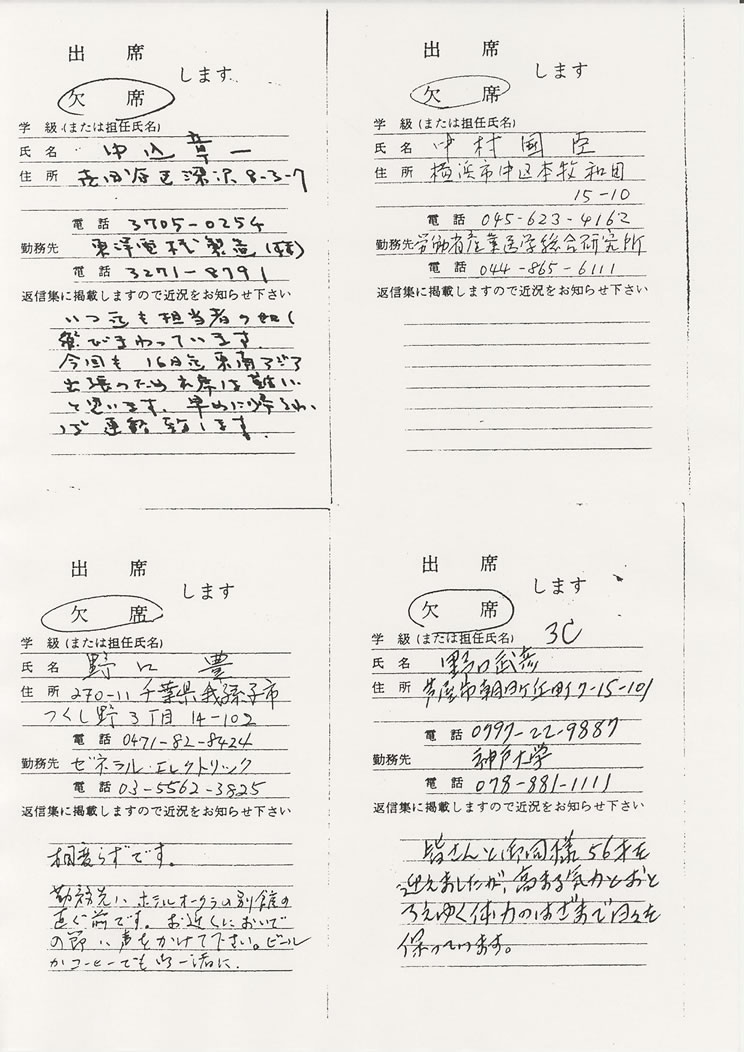 出席
します
欠席
学級(または担任氏名)
氏名 中込章一
住所 世田谷区深沢8-3-7
電話 3705-0254
勤務先 東洋電機製造(株)
電話 3271-8791
返信集に掲載しますので近況をお知らせ下さい
いつ迄も担当者の如く
飛びまわっています
今回も16日迄東南アジア
出張のため出席は難しい
と思います。早めに帰れれ
ば連絡致します。
出席
します
欠席
学級(または担任氏名)
氏名 中村國臣
住所 横浜市中区本牧和田
15-10
電話 045-623-4162
勤務先 労働省産業医学総合研究所
電話 044-865-6111
返信集に掲載しますので近況をお知らせ下さい
出席
します
欠席
学級(または担任氏名)
氏名 野口豊
住所 270-11 千葉県我孫子市
つくし野3丁目14-102
電話 0471-82-8424
勤務先 ゼネラル・エレクトリック
電話 03-5562-3825
返信集に掲載しますので近況をお知らせ下さい
相変らずです。
勤務先はホテルオークラの別館の
直ぐ前です。お近くにおいで
の節は声をかけて下さい。ビール
かコーヒーでも御一緒に.
出席
します
欠席
学級(または担任氏名) 3C
氏名 野口武彦
住所 芦屋市朝日ケ丘町7-15-101
電話 0797-22-9887
勤務先 神戸大学
電話 078-881-1111
返信集に掲載しますので近況をお知らせ下さい
皆さんと御同様56才を
迎えましたが、高まる気力とおと
ろえゆく体力のはざまで日々を
保っています。